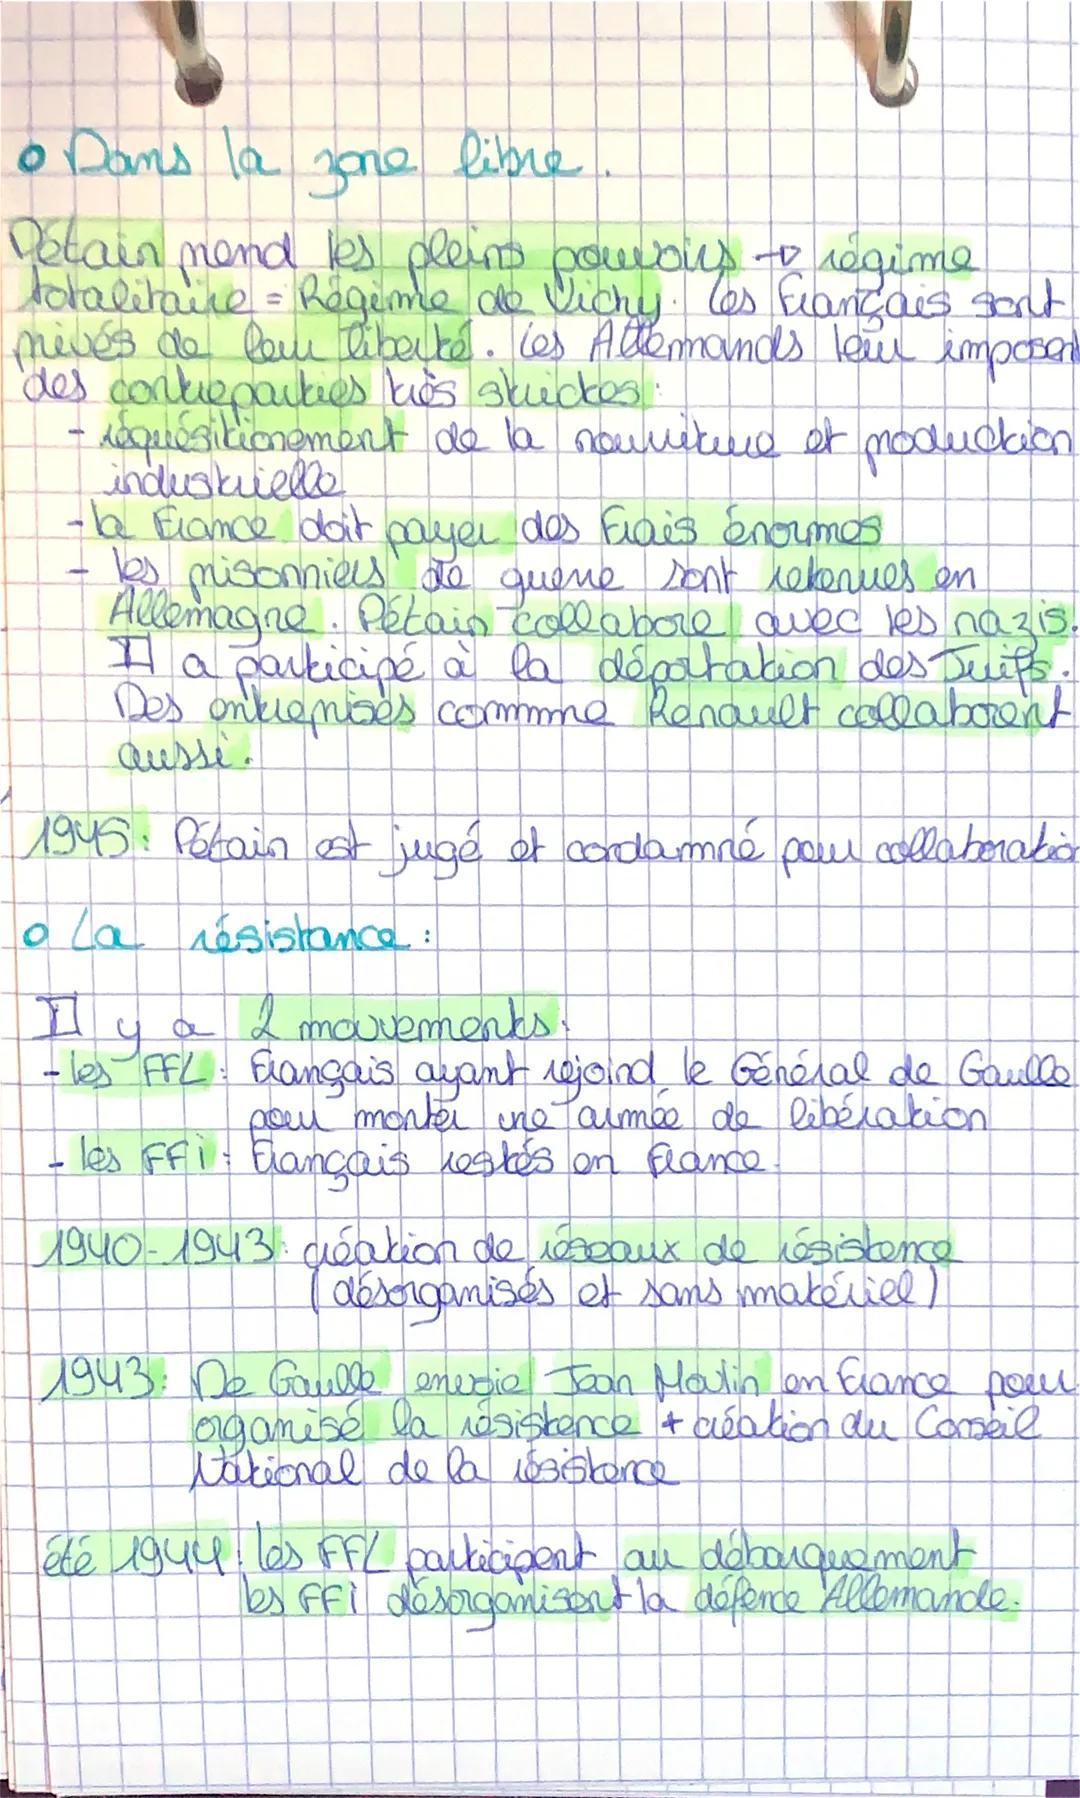 o Dans la zone libre.
Pétain prend les pleins pouvoirs → régime
totalitaire = Régime de Vichy. Les français sont
privés de leur liberté. Les Allemands leur imposent
des contreparties très strictes :
- réquésitionement de la nourriture et production
industrielle
- la France doit payer des frais énormes
- les prisonniers de guerre sont retenues en
Allemagne. Pétain collabore avec les nazis.
Il a participé à la déportation des Juifs.
Des entreprises commme Renault collaborent
aussi.
1945 : Pétain est jugé et condamné pour collaboration
o La résistance :
Il y a 2 mouvements.
- les FFL : Français ayant rejoind le Général de Gaulle
pour monter une armée de libération
- les FFi : Français restés en France.
1940-1943 : création de réseaux de résistence
(désorganisés et sans matériel)
1943 : De Gaulle envoie Jean Moulin en France pour
organisé la résistence + création du Conseil
National de la résistence
été 1944 : les FFL participent au débarquement
les FFi désorganisent la défence Allemande.